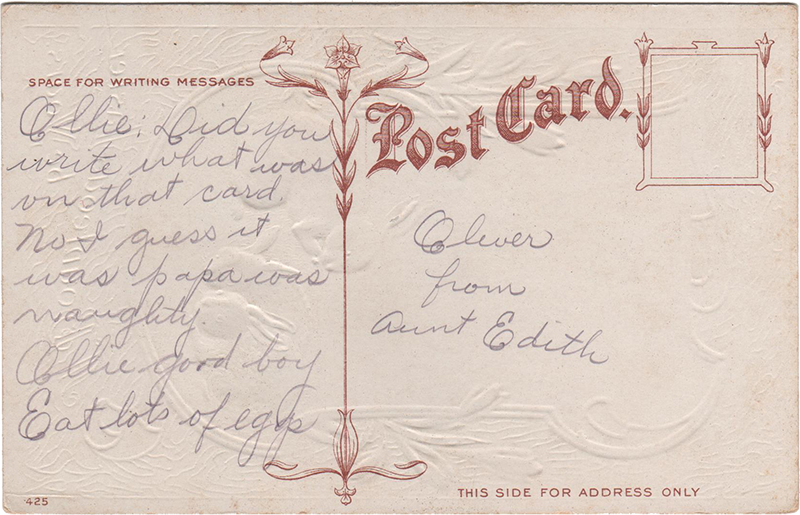 SPACE FOR WRITING MESSAGES
Post Card.
Ollie; Did you
write what was
on that card.
No I guess it
was papa was
naughty.
Ollie good boy
Eat lots of eggs
Oliver
from
Aunt Edith
425
THIS SIDE FOR ADDRESS ONLY